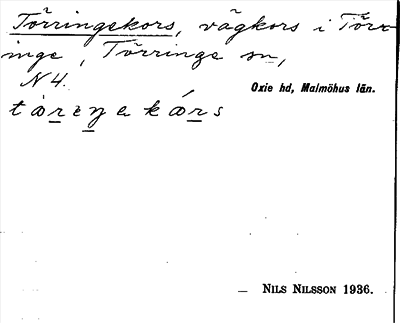 Törringekors, vägkors i Törr-
inge, Törringe sn,
N 4.
Oxie hd, Malmöhus län.
— NILS NILSSON 1936.